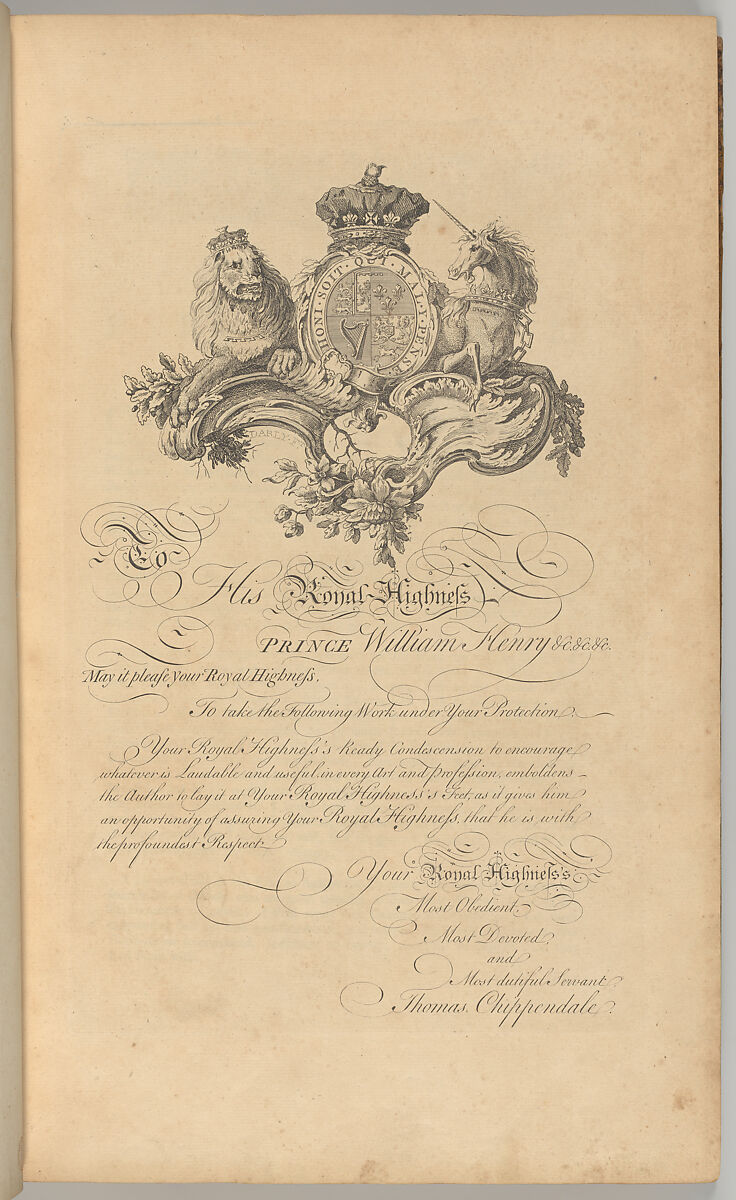 HONI · SOIT · QUI · MAL · Y · PENSE
DARLY
To
His Royal Highneſs
PRINCE William Henry &c.&c.&c.
May it pleaſe your Royal Highneſs.
To take the Following Work under Your Protection.
Your Royal Highneſs's Ready Condescension to encourage
whatever is Laudable and useful, in every Art and Profeſsion, emboldens
the Author to lay it at Your Royal Highneſs's Feet, as it gives him
an opportunity of assuring Your Royal Highneſs, that he is with
the profoundest Respect
Your Royal Highneſs's
Most Obedient,
Most Devoted,
and
Most dutiful Servant
Thomas Chippendale.